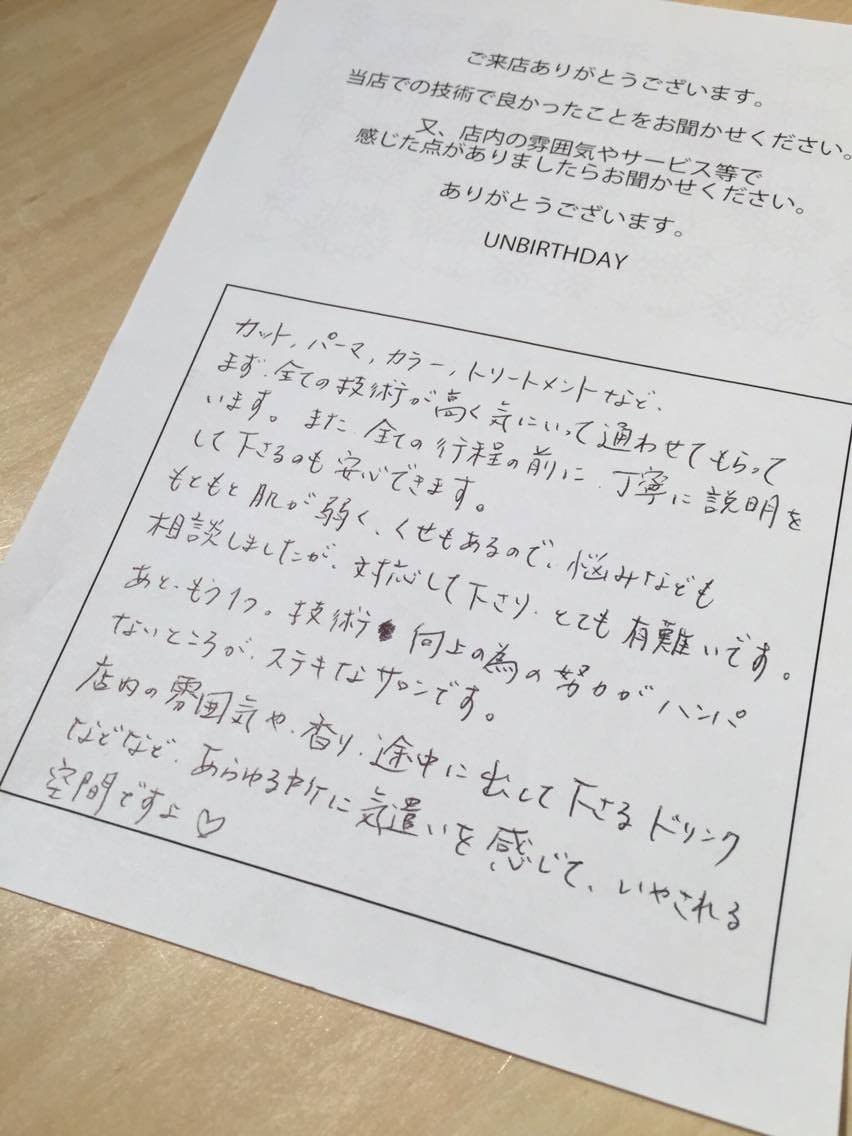 ご来店ありがとうございます。
当店での技術で良かったことをお聞かせください。
又、店内の雰囲気やサービス等で
感じた点がありましたらお聞かせください。
ありがとうございます。
UNBIRTHDAY
カット, パーマ, カラー, トリートメントなど、
まず、全ての技術が高く気にいって通わせてもらって
います。また、全ての行程の前に、丁寧に説明を
して下さるのも安心できます。
もともと肌が弱く、くせもあるので、悩みなども
相談しましたが、対応して下さり、とても有難いです。
あと、もう1つ。技術 向上の為の努力がハンパ
ないところが、ステキなサロンです。
店内の雰囲気や、香り、途中に出して下さるドリンク
などなど、あらゆる に気遣いを感じて、いやされる
空間ですよ♡